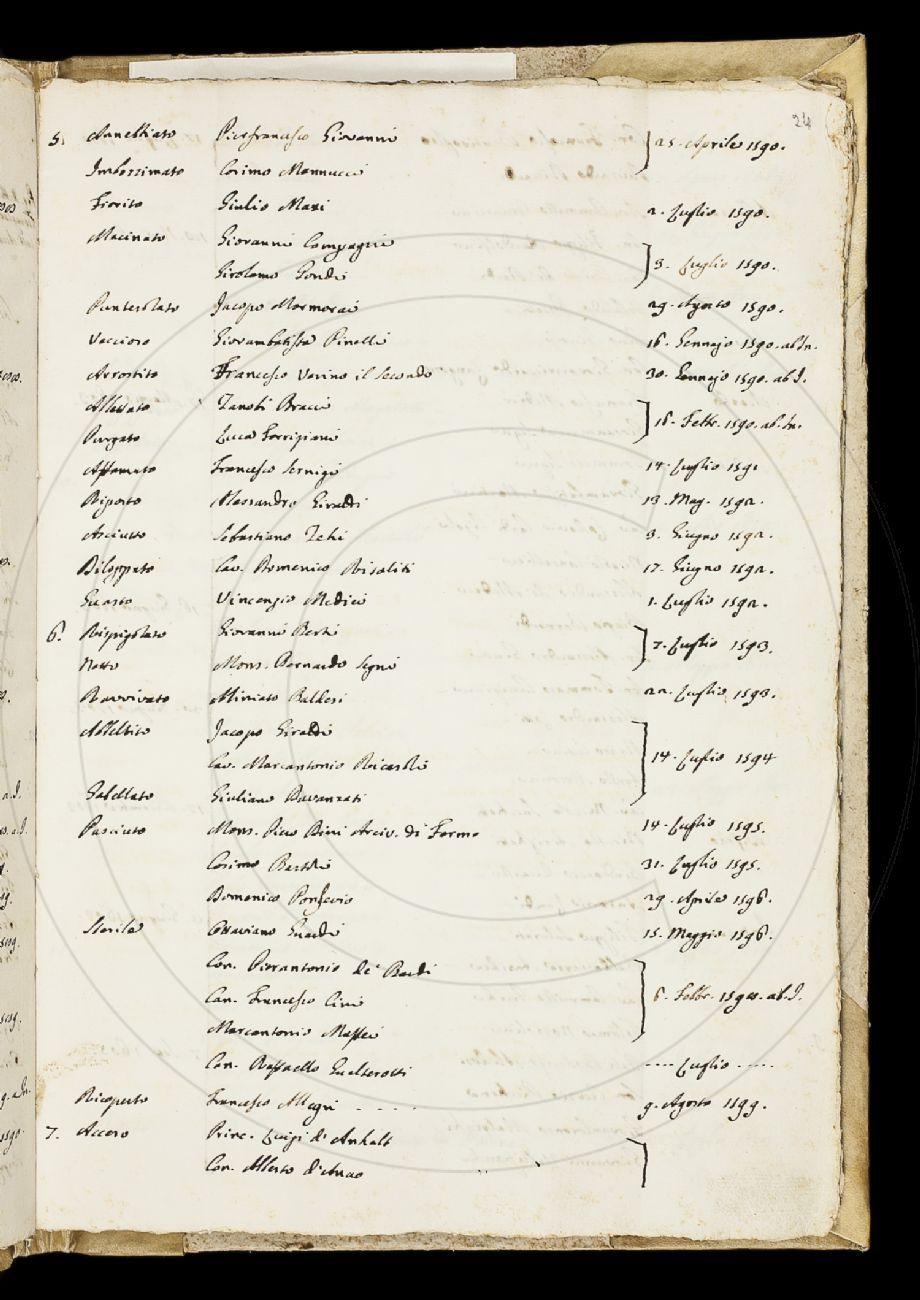 24
5. Annebbiato Pierfrancesco Giovanni } 25. Aprile 1590.
Imbozzimato Cosimo Mannucci
Fiorito Giulio Mazi 2. Luglio 1590.
Macinato Giovanni Compagni } 3. Luglio 1590.
Girolamo Gondi
Punterolato Jacopo Mormorai 29. Agosto 1590.
Giovambatista Pinelli 16. Gennajo 1590. ab In.
Arrostito Francesco Verino il Secondo 30. Gennajo 1590. ab I.
Allevato Zanobi Bracci } 18. Febb. 1590. ab. In.
Purgato Luca Torrigiani
Affamato Francesco Sernigi 14. Luglio 1591
Riposto Alessandro Giraldi 13. Mag. 1592.
Asciutto Sebastiano Zehi 3. Giugno 1592.
Cav. Domenico Risaliti 17. Giugno 1592.
Guasto Vincenzio Medici 1. Luglio 1592.
6. Rispigolato Giovanni Berti } 7. Luglio 1593.
Netto Mons. Bernardo Segni
Ravvivato Miniato Baldesi 22. Luglio 1593.
Jacopo Giraldi } 14. Luglio 1594
Cav. Marcantonio Ricasoli
Gabellato Giuliano Davanzati
Pasciuto Mons. Piero Dini Arciv. di Fermo 14. Luglio 1595.
Cosimo 31. Luglio 1595.
Domenico 29. Aprile 1596.
Sterile Ottaviano 15. Maggio 1596.
Con. Pierantonio de' Bardi } 6. Febbr. ab. I.
Can. Francesco Cini
Marcantonio Maffei
Can. Raffaello Gualterotti ---- Luglio -----
Ricoperto Francesco Allegri - - - - 9. Agosto 1599.
7. Acceso Prin. Luigi d' Anhalt }
Con. Alberto